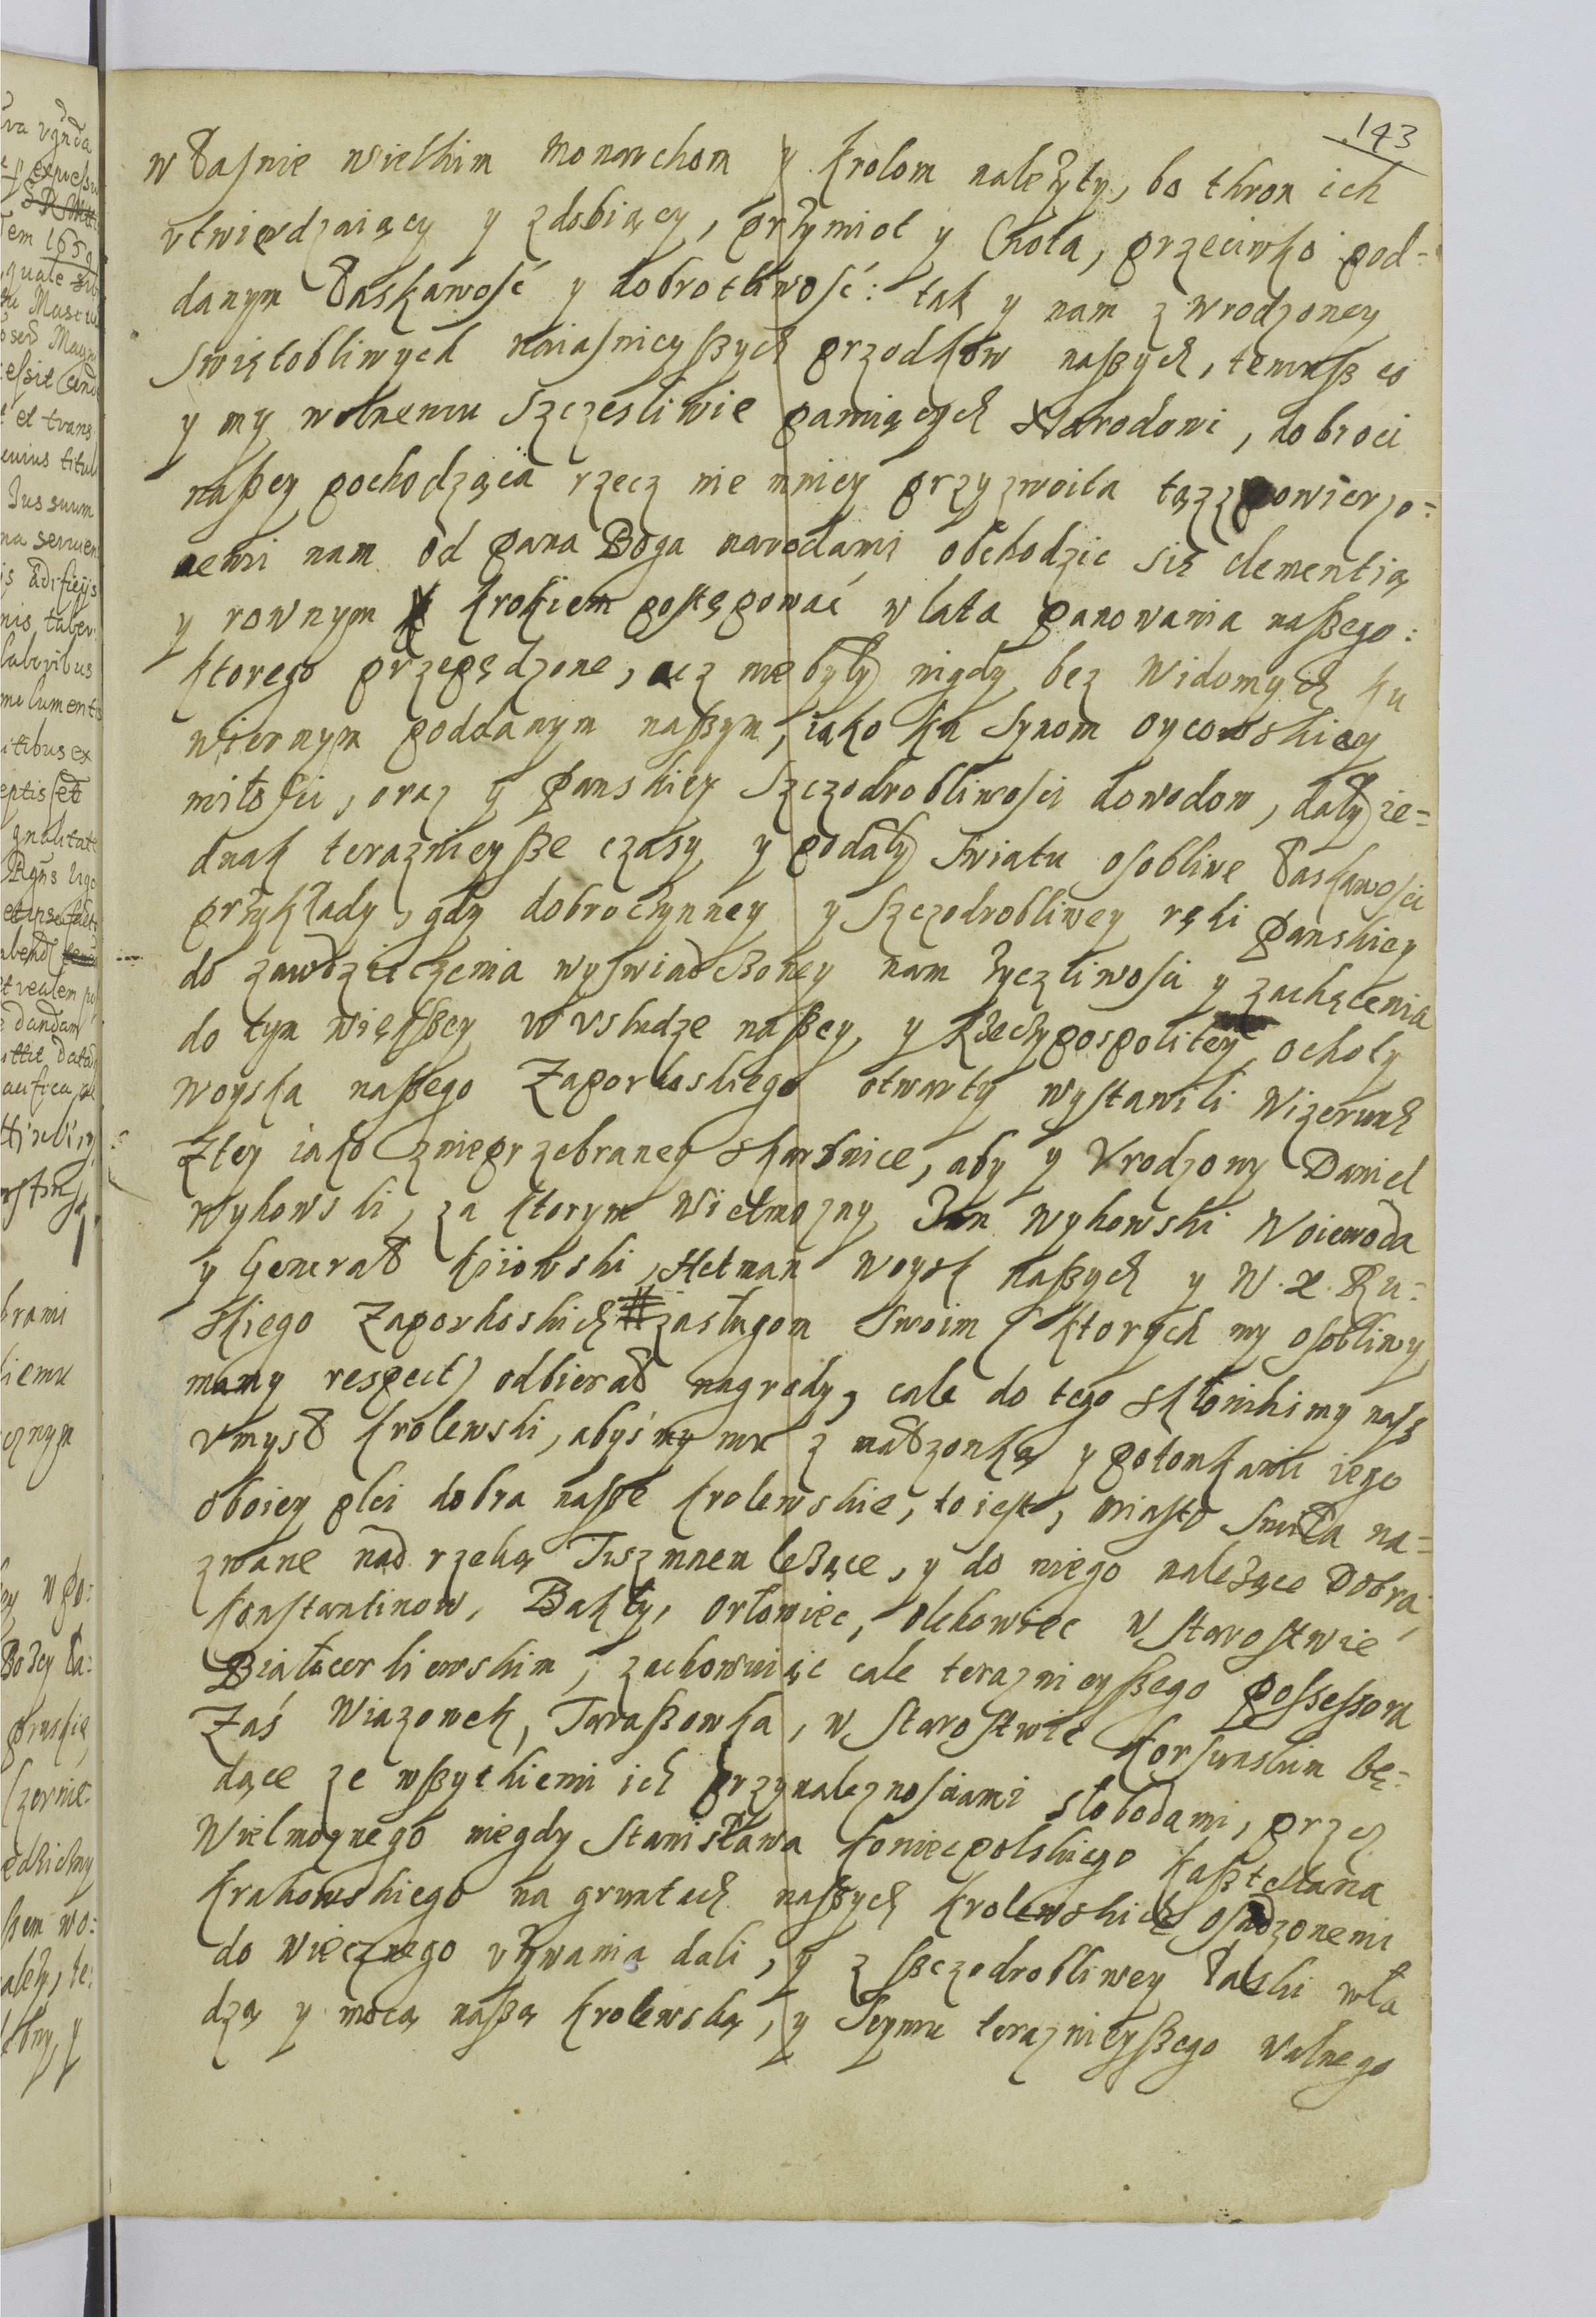 143
własnie wielkim Monarchom y Krolom należyty, bo thron ich
vtwierdzaiący y zdobiący, przymiot y Cnota, przeciwko pod-
danym łaskawość y dobrotliwość: tak y nam z wrodzoney
Swiętobliwych naiasnieyszych przodkow naszych, temusz co
y my wolnemu Szczesliwie panuiących Narodowi, dobroci
naszey pochodząca rzecz nie mniey przyzwoita tązz powierzo-
nemi nam od pana Boga narodami obchodzic się clementią
y rownym krokiem postępować w lata panowania naszego:
ktorego przepędzone, acz nie były nigdy bez Widomych ku
wiernym poddanym naszym, iako ku Synom oycowskiey
miłości, oraz y Panskiey Szczodrobliwości dowodow, dały ie-
dnak teraznieysze czasy y podały Swiatu osobliwe łaskawości
przykłady, gdy dobroczynney y Szczodrobliwey ręki Panskiey
do zawdzięczenia wyswiadczoney nam życzliwości y zachęcenia
do tym większey w vsłudze naszey, y Rzeczypospolitey ochoty
woyska naszego Zaporhoskiego otwarty wystawili Wizerunk
Ztey iako z nieprzebraney skarbnice, aby y Vrodzony Daniel
Wyhowski, za ktorym Wielmozny Jan Wyhowski Woiewoda
y Generał Kiiowski, Hetman Woysk naszych y W. X. Ru-
skiego Zaporhoskich zasługom Swoim (ktorych my osobliwy
mamy respect) odbierał nagrody, cale do tego skłonihimy nasz
vmysł Krolewski, abyśmy mu z małzonką y potomkami iego
oboiey płci dobra nasze Krolewskie, to iest, Miasto Smiła na-
zwane nad rzeką Tuszmnem leżące, y do niego należące Dobra,
Konstantinow, Bakły, Orłowiec, Olchowiec w Starostwie
Białocerkiewskim, zachowuiąc cale teraznieyszego possessora
Zaś Wiazowek, Taraszowka, w Starostwie Korsunskim bę-
dące ze wszytkiemi ich przynaleznosciami słobodami, przez
Wielmoznego niegdy Stanisława Koniecpolskiego Kasztellana
Krakowskiego na gruntach naszych Krolewskich osadzonemi
do wiecznego vżywania dali, y z szczodrobliwey łaski wła
dzą y mocą naszą Krolewską, y Seymu teraznieyszego walnego